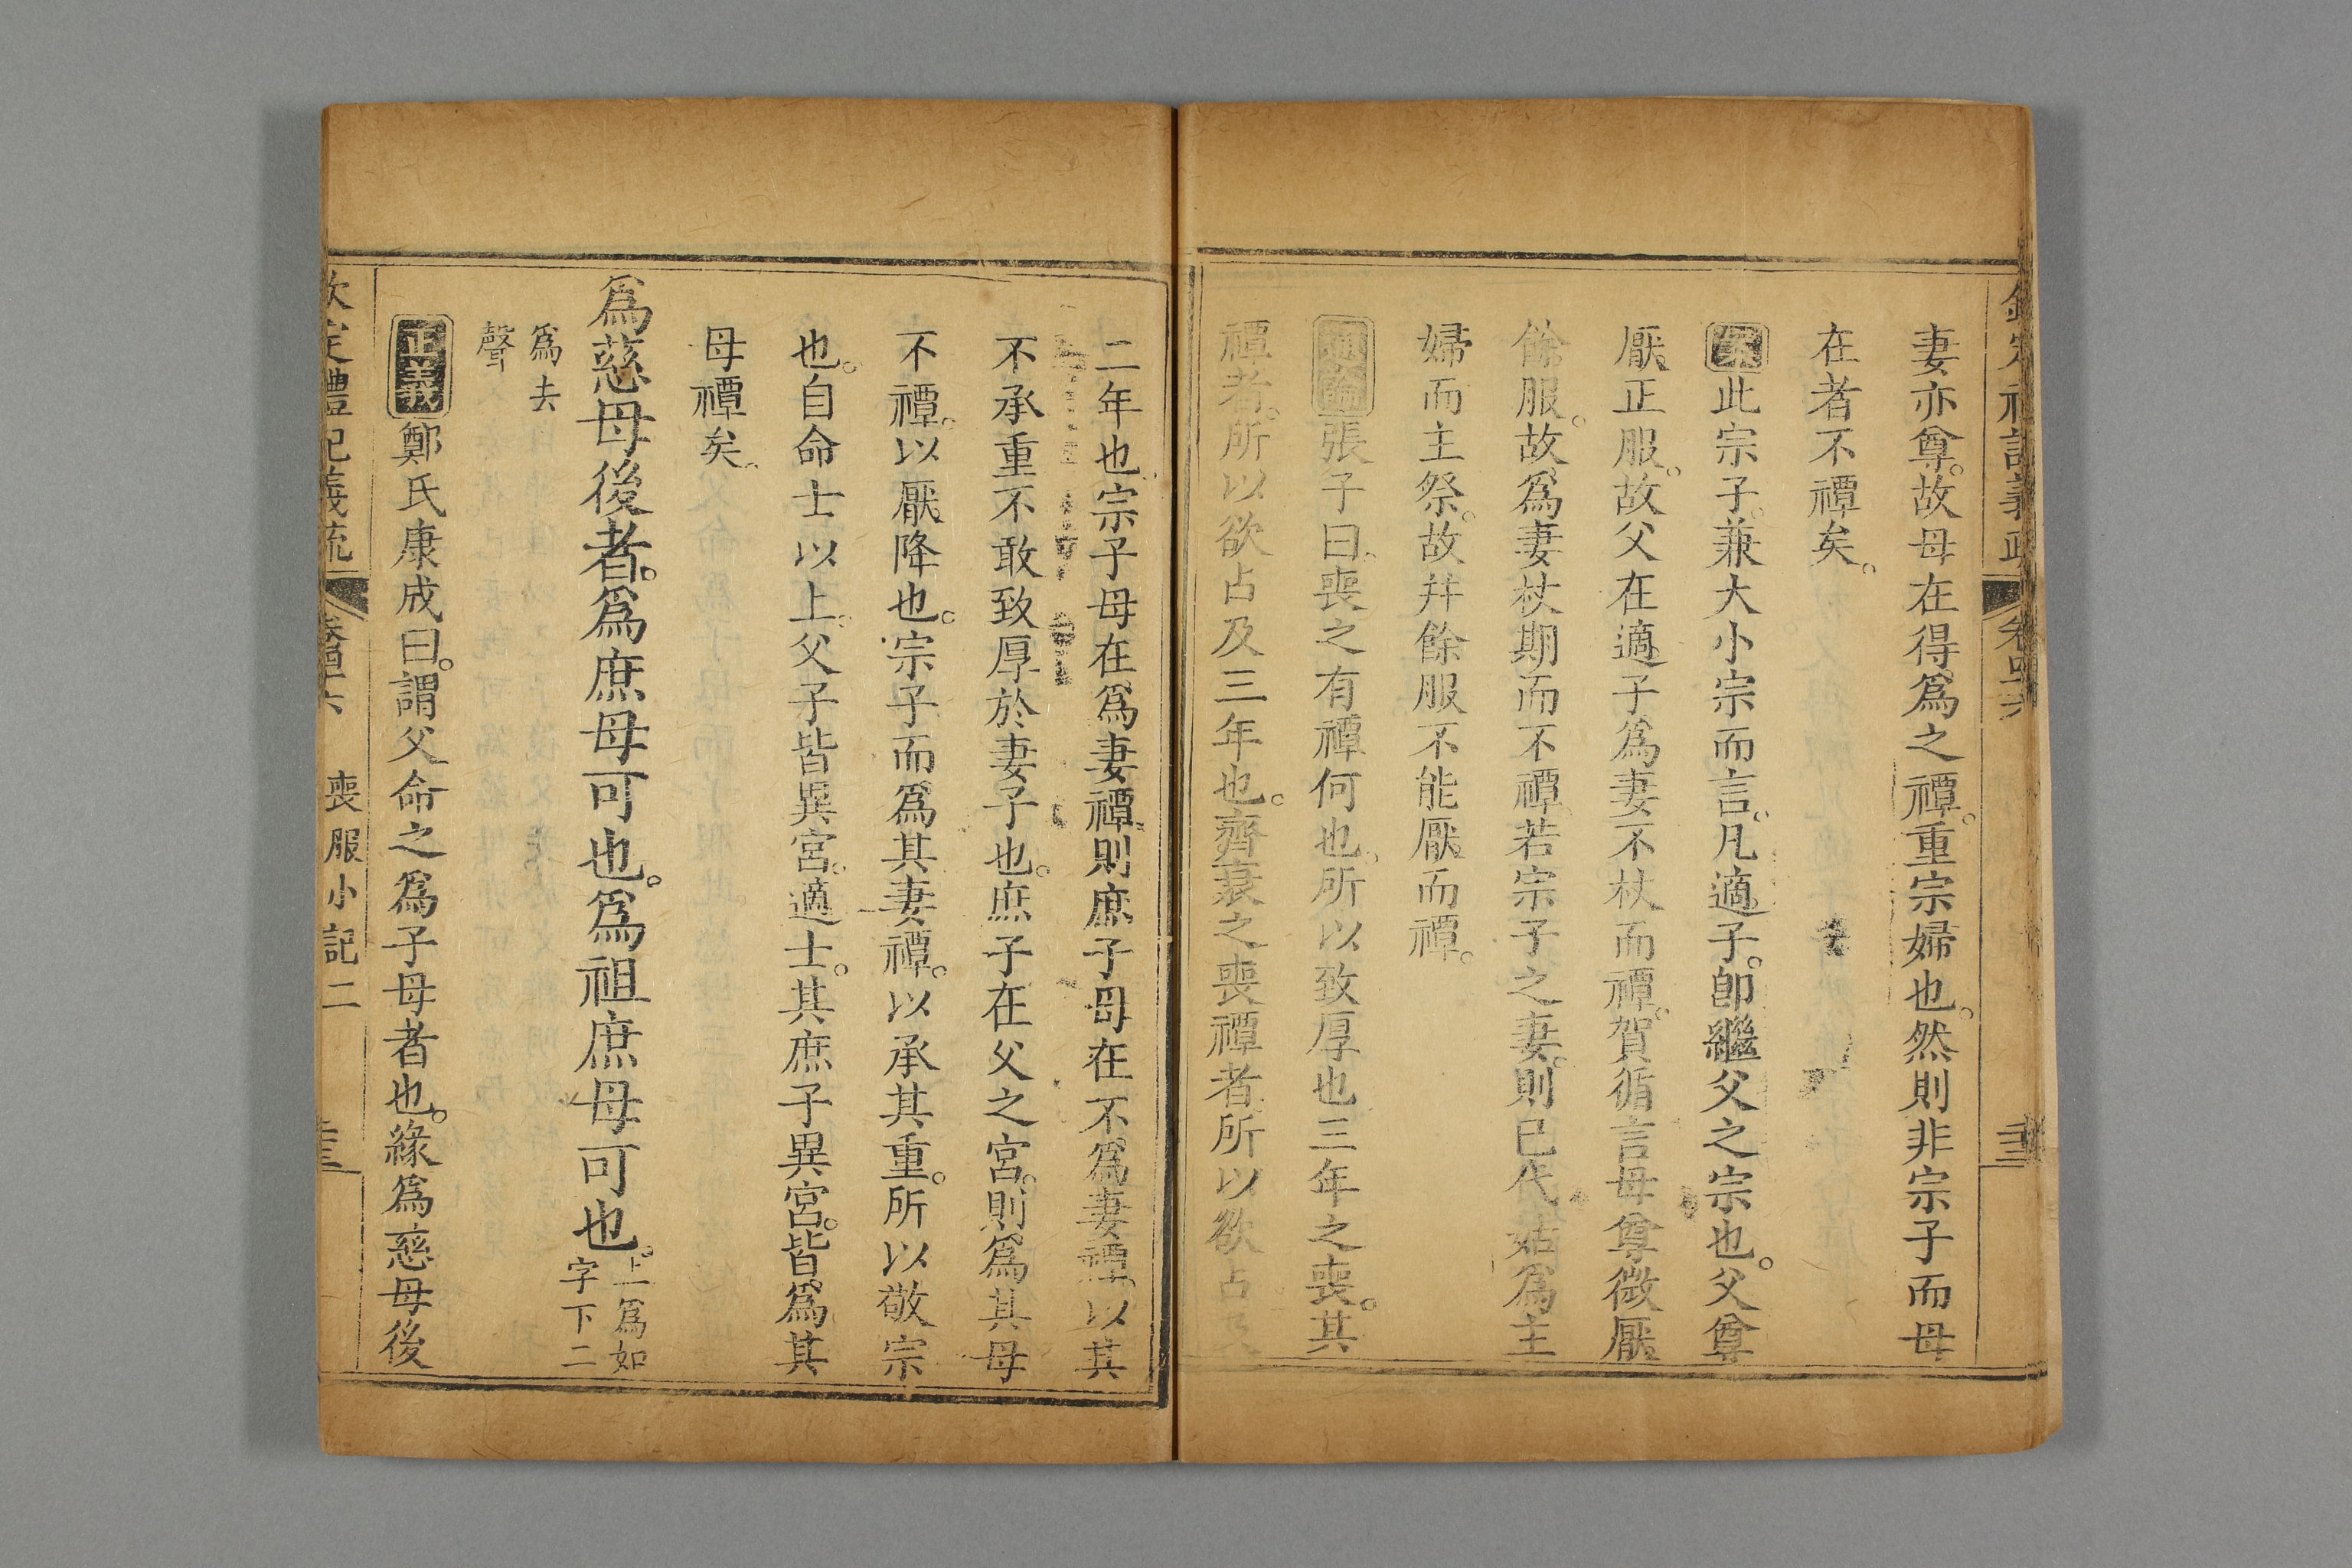 欽定禮記義疏 卷四十六
妻亦尊。故母在得爲之禫。重宗婦也。然則非宗子而母
在者不禫矣。
案此宗子。兼大小宗而言。凡適子。卽繼父之宗也。父尊
厭正服。故父在適子爲妻不杖而禫。賀循言母尊微厭
餘服。故爲妻杖期而不禫。若宗子之妻。則已代姑爲主
婦而主祭。故幷餘服不能厭而禫。
通論張子曰。喪之有禫何也。所以致厚也三年之喪。其
禫者。所以欲占及三年也。齊衰之喪禫者所以欲占及
二年也。宗子母在爲妻禫。則庶子母在不爲妻禫。以其
不承重不敢致厚於妻子也。庶子在父之宮。則爲其母
不禫。以厭降也。宗子而爲其妻禫。以承其重。所以敬宗
也。自命士以上。父子皆異宮。適士。其庶子異宮。皆爲其
母禫矣。
爲慈母後者。爲庶母可也。爲祖庶母可也。上爲如
字下二
爲去
聲
正義鄭氏康成曰。謂父命之爲子母者也。緣爲慈母後
欽定禮記義疏 卷四十六 喪服小記二